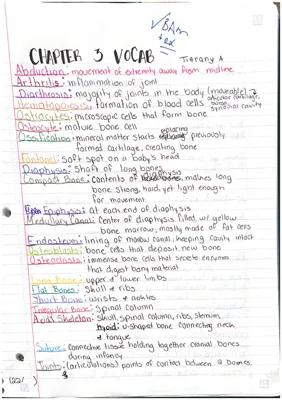 BAM
CHAPTER 3 VOCAB Tierany A
Abduction: movement of extremity away from midline
Arthritis: inflammation of joint
Diarthrosis: majority of joints in the body (moveable)
articular cartilage,
synovial cavity
Hematopoiesis: formation of blood cells
Ostrocytes: microscopic cells that form bone
Osteocyte: mature bone cell
Ossification: mineral matter starts replacing previously
formed cartilage, creating bone
Fontanel: soft spot on a baby's head
Diaphysis: shaft of long bones
Compact Bone: contents of diaphysis makes long
bone strong, hard, yet light enough
for movement
Epiphysis: at each end of diaphysis
Medullary Canal: center of diaphysis filled w/ yellow
bone marrow, mostly made of fat cells
Endosteum: lining of marrow canal, keeping cavity intact
Osteoblasts: bone cells that deposit new bone
Osteoclasts: immense bone cells that secrete enzymes
that digest bony material
Long Bone: upper & lower limbs
Flat Bones: skull & ribs
Short Bone: wrists & ankles
Irregular Bone: spinal column
Axial Skeleton: skull, spinal column, ribs, sternum,
hyoid: u-shaped bone connecting neck
& tongue
Suture: connective tissue holding together cranial bones
during infancy
Joints: (articulations) points of contact between 2 bones.